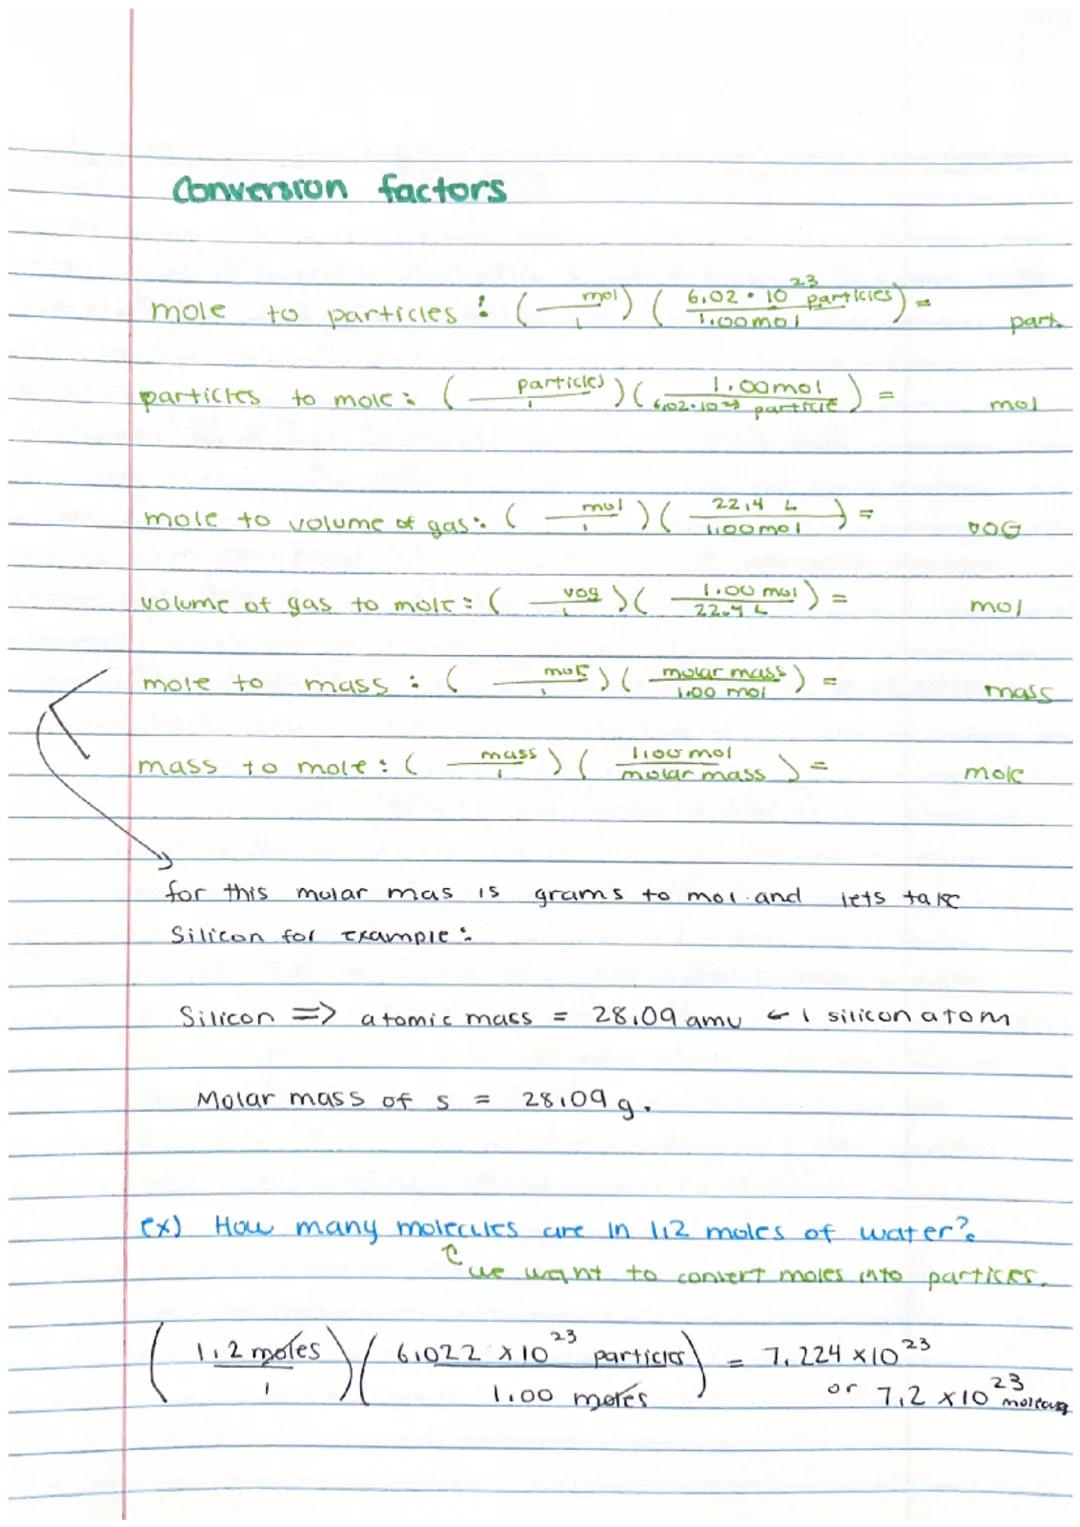 Conversion factors
mole to particles : ( mol / 1 ) ( 6.02 · 10^23 particles / 1.00 mol ) = part.
particles to mole : ( particles / 1 ) ( 1.00 mol / 6.02 · 10^23 particle ) = mol
mole to volume of gas : ( mol / 1 ) ( 22.4 L / 1.00 mol ) = VOG
volume of gas to mole : ( vog / 1 ) ( 1.00 mol / 22.4 L ) = mol
mole to mass : ( mole / 1 ) ( molar mass / 1.00 mol ) = mass
mass to mole : ( mass / 1 ) ( 1.00 mol / molar mass ) = mole
for this molar mas is grams to mol and lets take
Silicon for Example :
Silicon => atomic mass = 28.09 amu ← 1 silicon atom
Molar mass of s = 28.09 g.
ex) How many molecules are in 1.2 moles of water?
we want to convert moles into particles.
( 1.2 moles / 1 ) ( 6.022 x 10^23 particles / 1.00 moles ) = 7.224 x 10^23
or 7.2 x 10^23 molecules